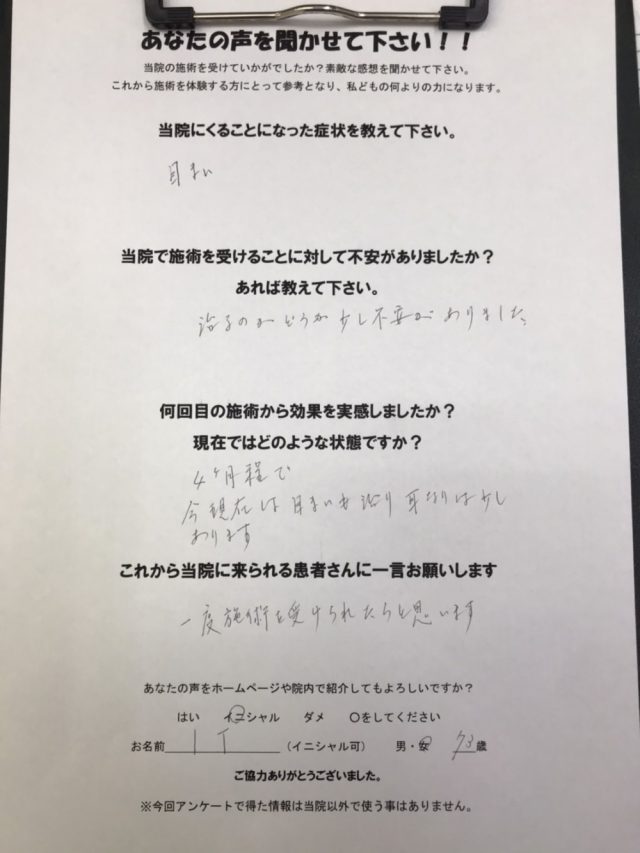 あなたの声を聞かせて下さい！！
当院の施術を受けていかがでしたか？素敵な感想を聞かせて下さい。
これから施術を体験する方にとって参考となり、私どもの何よりの力になります。
当院にくることになった症状を教えて下さい。
目まい
当院で施術を受けることに対して不安がありましたか？
あれば教えて下さい。
治るのかどうか少し不安がありました
何回目の施術から効果を実感しましたか？
現在ではどのような状態ですか？
4ヶ月程で
今現在は目まいも治り耳なりは少し
あります
これから当院に来られる患者さんに一言お願いします
一度施術を受けられたらと思います
あなたの声をホームページや院内で紹介してもよろしいですか？
はい イニシャル ダメ 〇をしてください
お名前 I T （イニシャル可） 男・女 73歳
ご協力ありがとうございました。
※今回アンケートで得た情報は当院以外で使う事はありません。